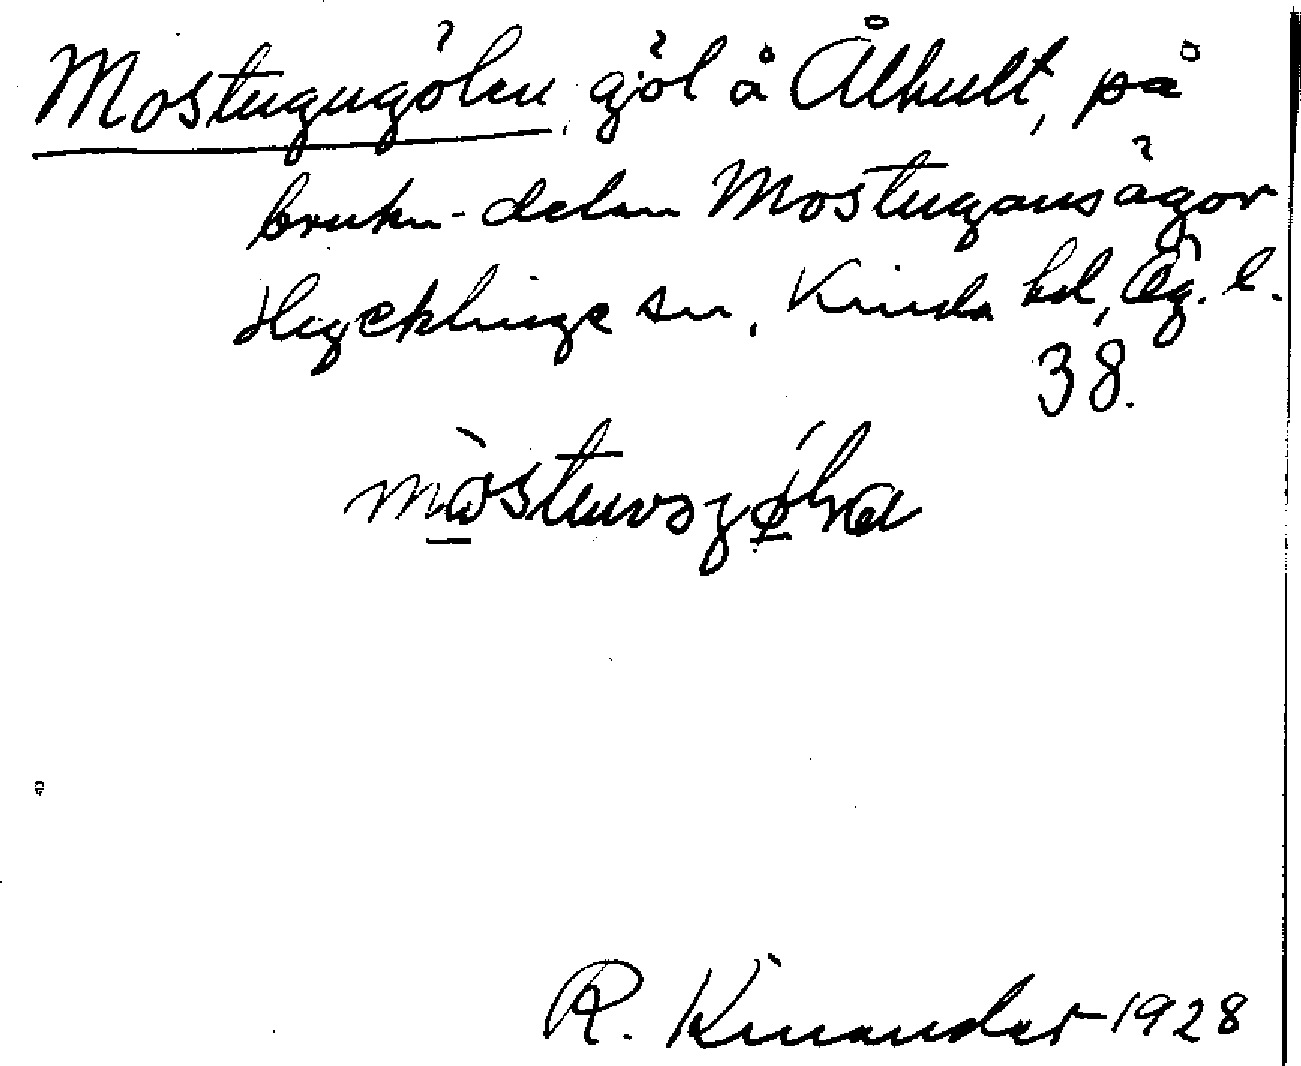 Mostugugölen, göl å Ålhult, på
bruks-delen Mostugans ägor
Hycklinge sn, Kinda hd, Ög. l.
38.
R. Kinander 1928